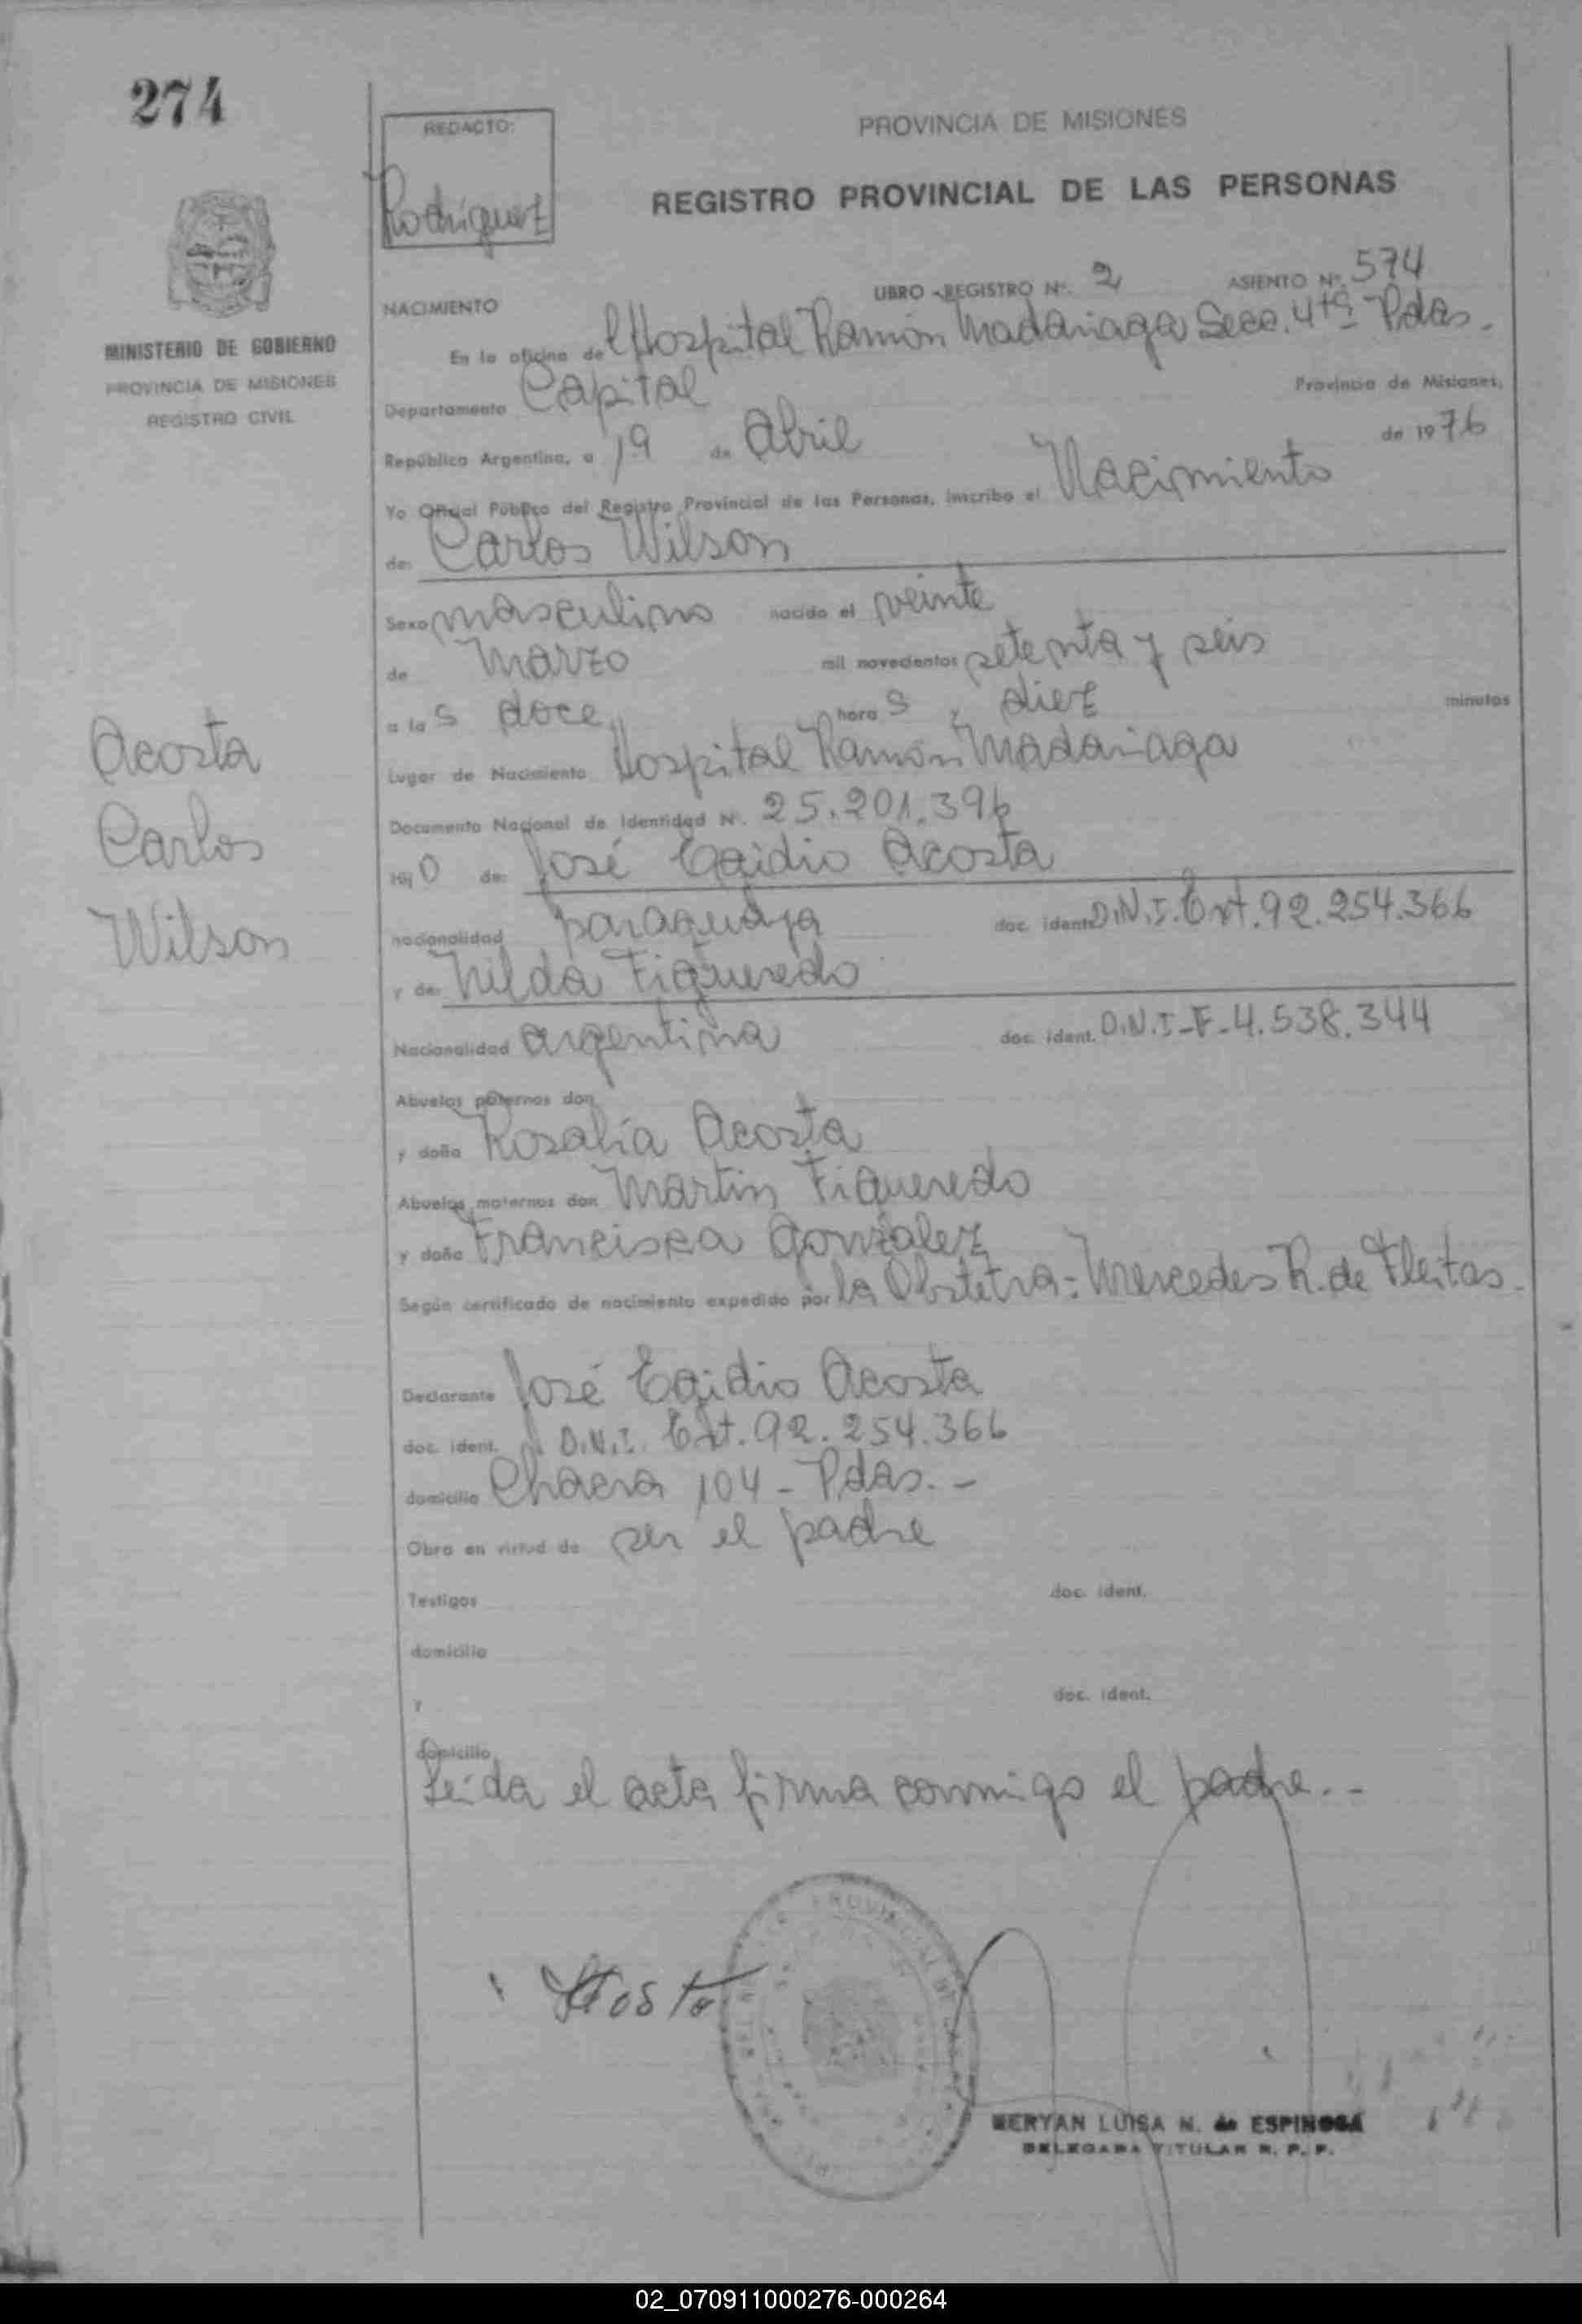 274
REDACTO:
Rodriguez
PROVINCIA DE MISIONES
REGISTRO PROVINCIAL DE LAS PERSONAS
MINISTERIO DE GOBIERNO
PROVINCIA DE MISIONES
REGISTRO CIVIL
NACIMIENTO
LIBRO - REGISTRO Nº. 2 ASIENTO Nº. 574
En la oficina del Hospital Ramón Madariaga Secc. 4ta Pdas.
Departamento Capital Provincia de Misiones,
República Argentina, a 19 de Abril de 1976
Yo Oficial Público del Registro Provincial de las Personas, inscribo el Nacimiento
de: Carlos Wilson
Sexo masculino nacido el veinte
de Marzo mil novecientos setenta y seis
a las doce horas y diez minutos
Lugar de Nacimiento Hospital Ramón Madariaga
Documento Nacional de Identidad Nº. 25.201.396
Hijo de: José Egidio Acosta
nacionalidad paraguaya doc. ident. D.N.I. Ext. 92.254.366
y de: Nilda Figueredo
Nacionalidad argentina doc. ident. D.N.I-F-4.538.344
Abuelos paternos don
y doña Rosalía Acosta
Abuelos maternos don Martin Figueredo
y doña Francisca Gonzalez
Según certificado de nacimiento expedido por la Obstetra: Mercedes R. de Fleitas.
Declarante José Egidio Acosta
doc. ident. D.N.I. Ext. 92.254.366
domicilio Chacra 104 - Pdas. -
Obra en virtud de ser el padre
Testigos doc. ident.
domicilio
y doc. ident.
domicilio
Leída el acta firma conmigo el padre. -
Acosta
Carlos
Wilson
Acosta
MERYAN LUISA N. de ESPINOSA
DELEGADA TITULAR R. P. P.
02_070911000276-000264